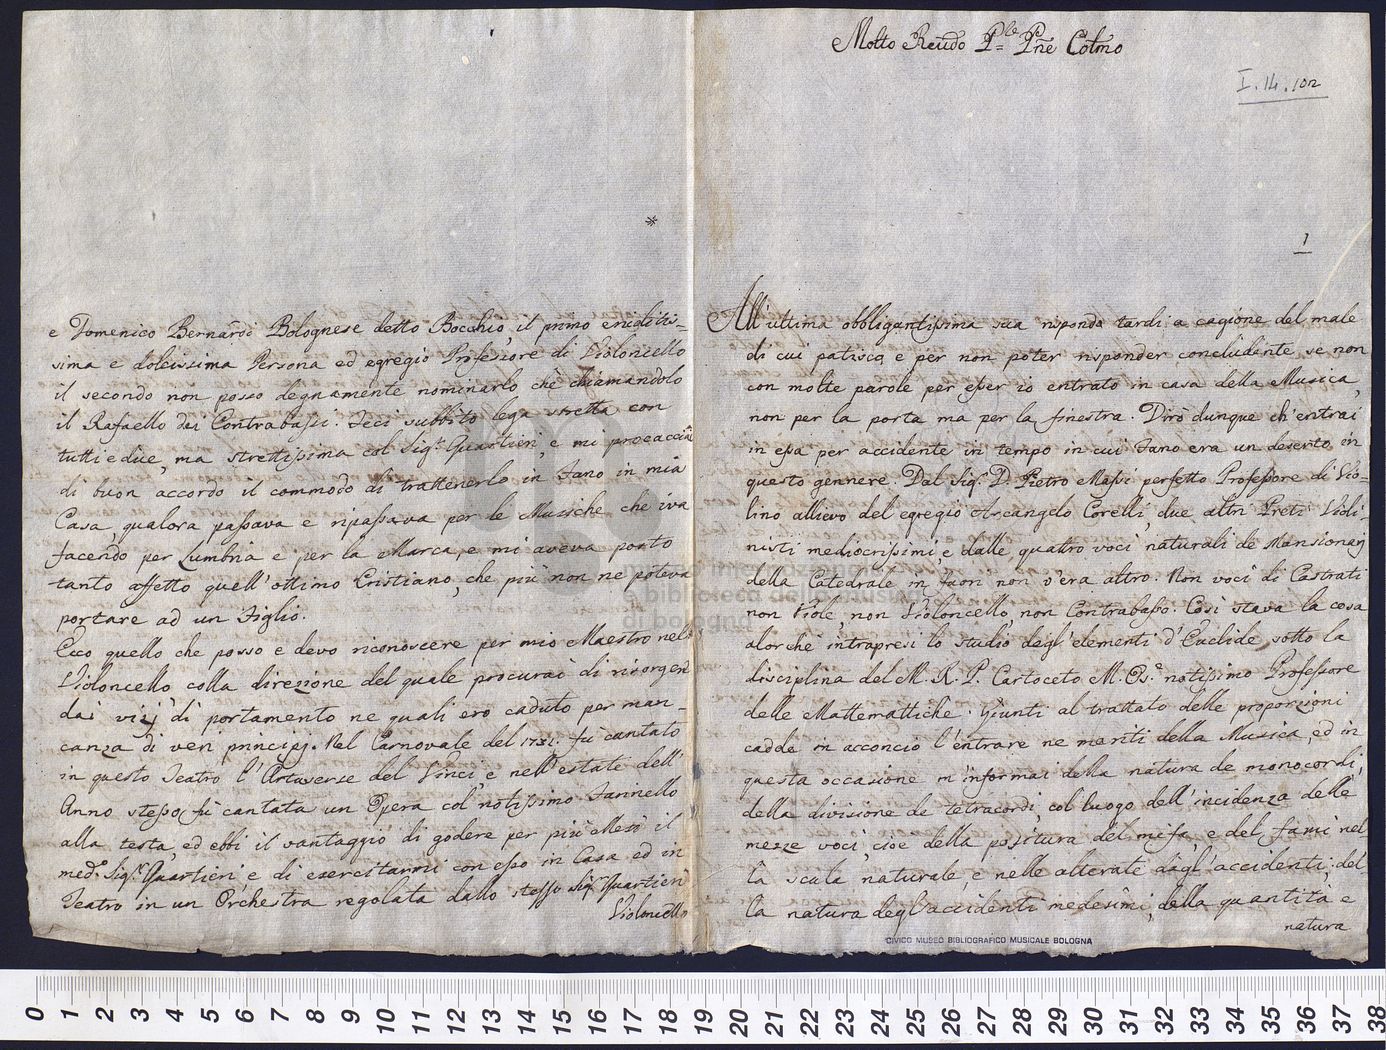 e Domenico Bernardi Bolognese detto Bocchio, il primo
sima e dolcissima Persona ed egregio Professore di Violoncello
il secondo non posso degnamente nominarlo, chè chiamandolo
il Rafaello dei Contrabassi. Feci subbito lega stretta con
tutti e due, ma strettissima col Sigr. Quartieri, e mi procacciai
di buon accordo il commodo di trattenerlo in Fano in mia
Casa qualora passava e ripassava per le Musiche che iva
facendo per Lumbria e per la Marca, e mi aveva posto
tanto affetto quell'ottimo Cristiano, che più non ne poteva
portare ad un Figlio.
Ecco quello che posso e devo riconoscere per mio Maestro nel
Violoncello colla direzione del quale procurai di risorgere
dai vizj di portamento ne quali ero caduto per man-
canza di veri principj. Nel Carnovale del 1731. fù cantato
in questo Teatro l'Artaserse del Vinci e nell'estate dell'
Anno stesso fù cantata un Opera col notissimo Farinello
alla testa, ed ebbi il vantaggio di godere per più Mesi il
med.o Sigr. Quartieri e di esercitarmi con esso in Casa ed in
Teatro in un Orchestra regolata dallo stesso Sigr. Quartieri
Violoncello
*
Molto Reudo Pre Pne Colmo
I.14.102
1
All'ultima obbligantissima sua rispondo tardi a cagione del male
di cui patisco, e per non poter risponder concludente se non
con molte parole per esser io entrato in casa della Musica,
non per la porta ma per la finestra. Dirò dunque ch'entrai
in essa per accidente in tempo in cui Fano era un deserto in
questo gennere. Dal Sigr. D. Pietro Massi perfetto Professore di Vio-
lino allievo del egregio Arcangelo Corelli, due altri Preti Violi-
nisti mediocrissimi, e dalle quattro voci naturali de Mansionarj
della Catedrale in fuori non v'era altro. Non voci di Castrati
non Viole, non Violoncello, non Contrabasso. Così stava la cosa
alorchè intrapresi lo studio degl'elementi d'Euclide sotto la
disciplina del M. R. P. Cartoceto M. Os. notissimo Professore
delle Mattemattiche. Giunti al trattato delle proporzioni
cadde in acconcio l'entrare ne meriti della Musica, ed in
questa occasione m'informai della natura de monocordi,
della divisione de tetracordi, col luogo dell'incidenza delle
mezze voci, cioè della positura del mi fa, e del fa mi nel-
la scala naturale, e nelle alterate dagl'accidenti; del-
la natura degl'accidenti medesimi, della quantità e
natura
CIVICO MUSEO BIBLIOGRAFICO MUSICALE BOLOGNA
museo internazionale
e biblioteca della musica
di bologna
0 1 2 3 4 5 6 7 8 9 10 11 12 13 14 15 16 17 18 19 20 21 22 23 24 25 26 27 28 29 30 31 32 33 34 35 36 37 38